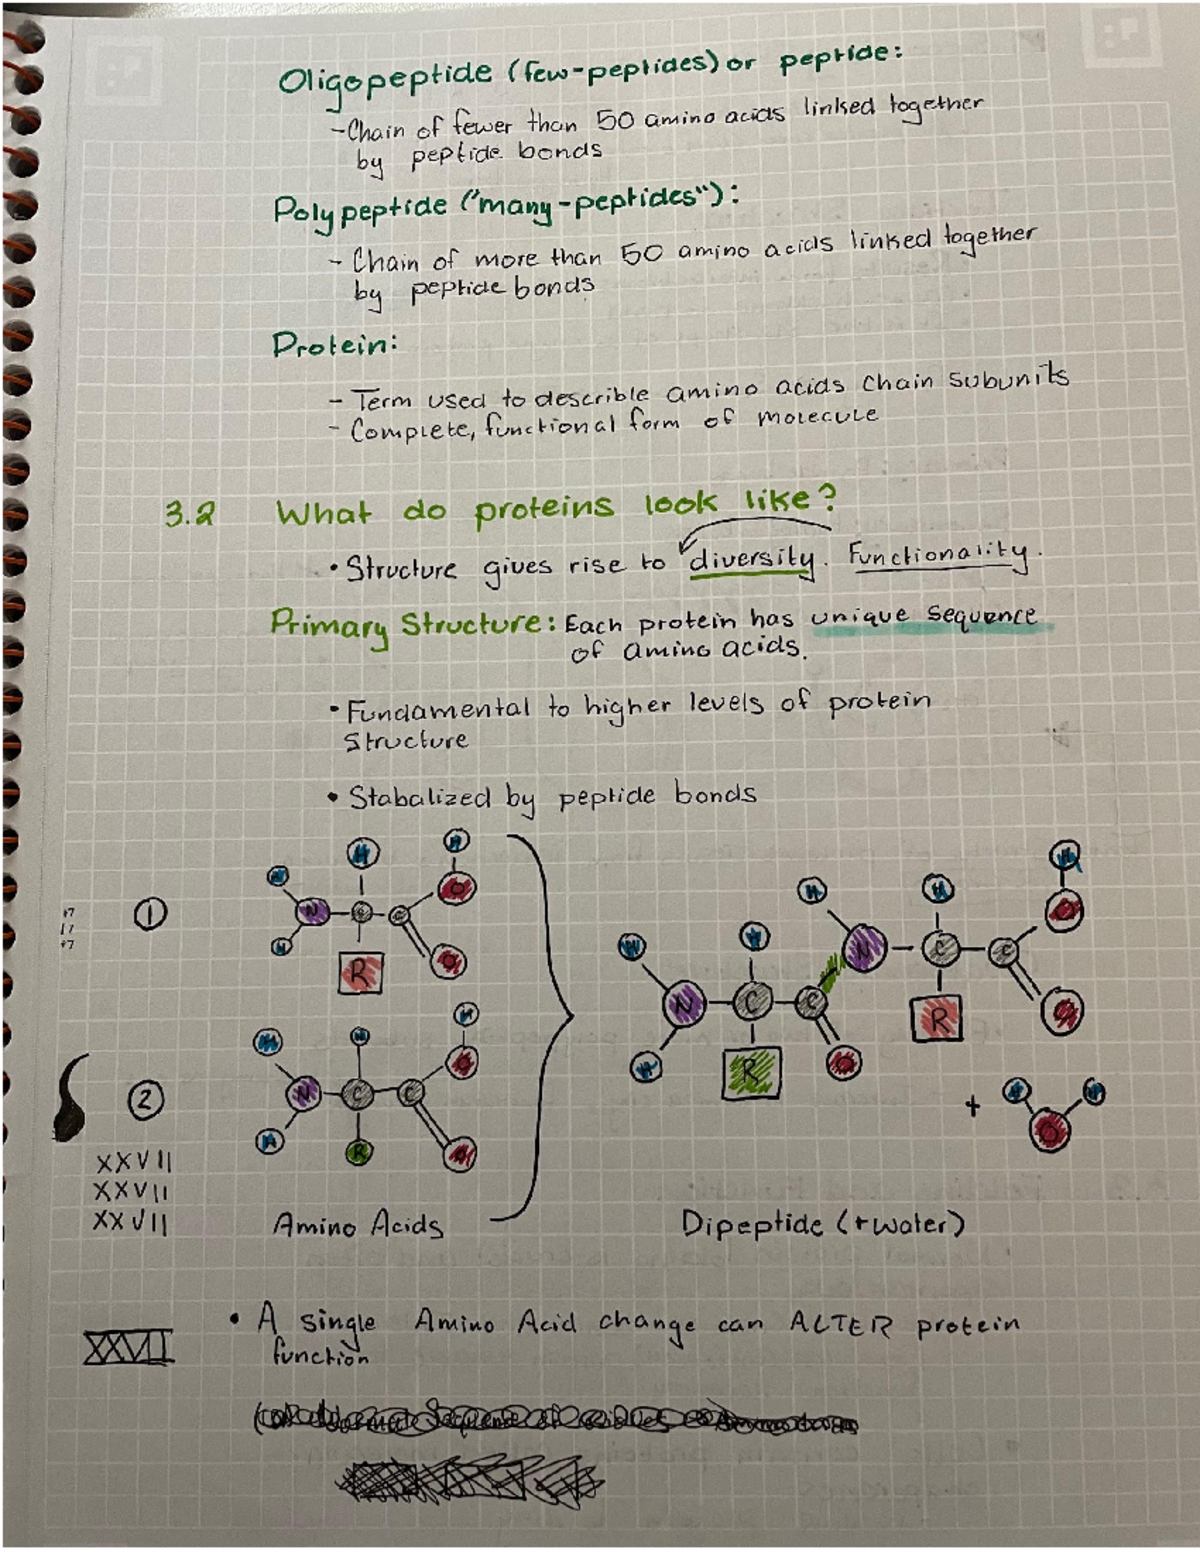 Oligopeptide (few-peptides) or peptide:
-Chain of fewer than 50 amino acids linked together
by peptide bonds
Polypeptide ("many-peptides"):
- Chain of more than 50 amino acids linked together
by peptide bonds
Protein:
- Term used to describle amino acids chain subunits
- Complete, functional form of molecule
3.2 What do proteins look like?
• Structure gives rise to diversity. Functionality.
Primary Structure: Each protein has unique sequence
of amino acids.
• Fundamental to higher levels of protein
structure
• Stabalized by peptide bonds
H H
H O H H
17 1 N C C H H O
17 H O H N C C
+7 R H N C C R O
H H H H R O
H O + H H
2 N C C O
H R O
XXVII
XXVII
XXVII Amino Acids Dipeptide (+water)
• A single Amino Acid change can ALTER protein
XXVII function